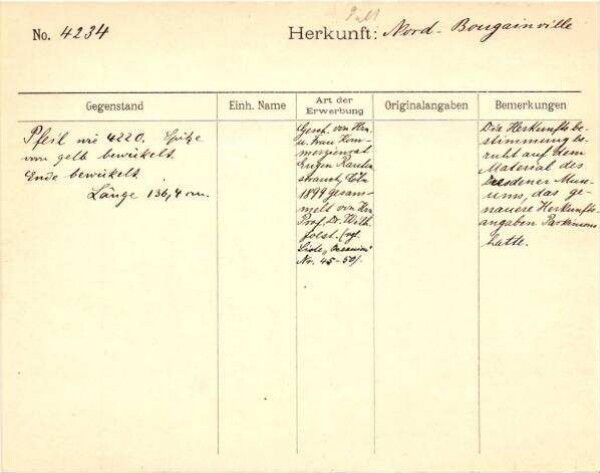 No. 4234
Herkunft: Nord-Bougainville
Gegenstand
Einh. Name
Art der Erwerbung
Originalangaben
Bemerkungen
Pfeil wie 4220. Spitze
von gelb bewickelt.
Ende bewickelt.
Länge 136,4 cm.
Gesch. von Hrn.
u. Frau Kom-
merzienrat
Eugen Rauten-
strauch, Cöln
1899 gesam-
melt von Hrn
Prof. Dr. Wilh.
Joest. (vgl.
Liste „Oceanien"
Nr. 45-50).
Die Herkunftsbe-
stimmung be-
ruht auf dem
Material des
Dresdener Muse-
ums, das ge-
nauere Herkunfts-
angaben Parkinsons
hatte.